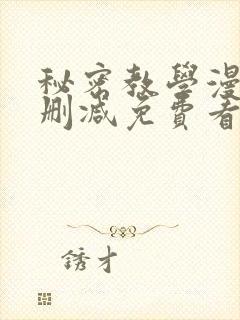 秘密教學漫
刪減免費看
銹才